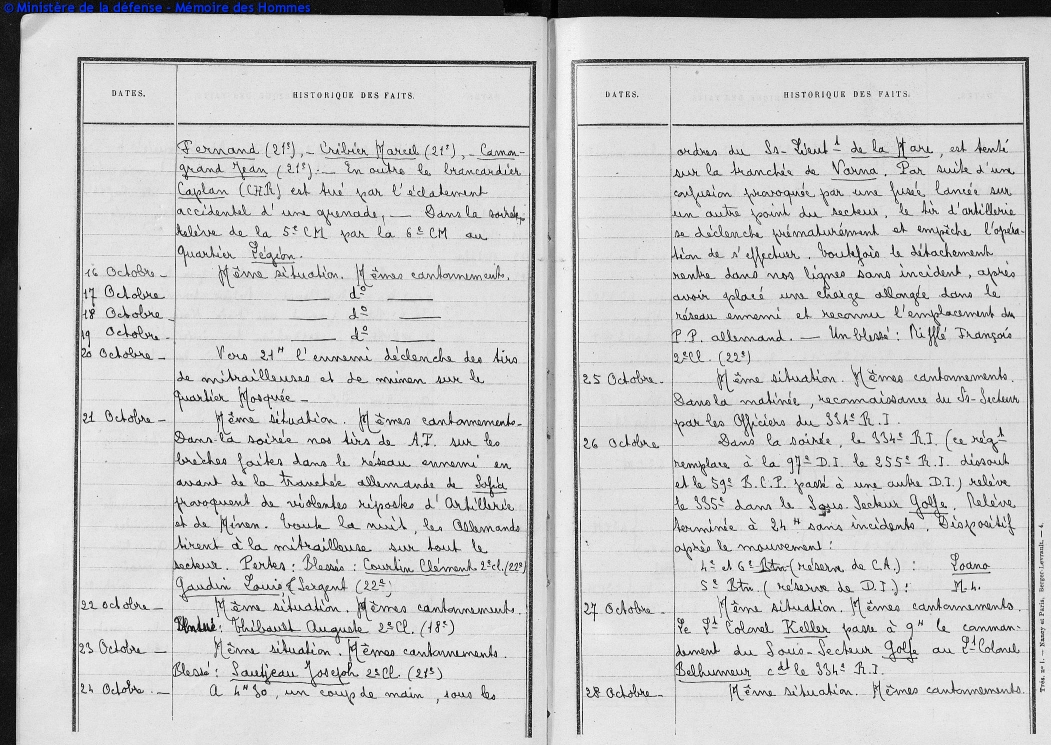 © Ministère de la défense - Mémoire des Hommes
DATES.
HISTORIQUE DES FAITS.
Fernand (21e), - Cribier Marcel (21e), - Camon-
grand Jean (21e). - En outre le brancardier
Caplan (CHR) est tué par l'éclatement
accidentel d'une grenade. - Dans la soirée,
relève de la 5e CM par la 6e CM au
quartier Légion.
16 Octobre - Même situation. Mêmes cantonnements.
17 Octobre do
18 Octobre - do
19 Octobre - do
20 Octobre - Vers 21H l'ennemi déclenche des tirs
de mitrailleuses et de minen sur le
quartier Mosquée -
21 Octobre - Même situation. Mêmes cantonnements -
Dans la soirée nos tirs de A.T. sur les
brèches faites dans le réseau ennemi en
avant de la tranchée allemande de Sofia
provoquent de violentes ripostes d'Artillerie
et de Minen. Toute la nuit, les Allemands
tirent à la mitrailleuse sur tout le
secteur. Pertes : Blessés : Courtin Clément 2e cl. (22e)
Gaudin Louis Sergent (22e)
22 Octobre - Même situation. Mêmes cantonnements.
Thibault Auguste 2e Cl. (18e)
23 Octobre - Même situation. Mêmes cantonnements.
Blessé : Joseph 2e Cl. (21e)
24 Octobre. - A 4H30, un coup de main, sous les
DATES.
HISTORIQUE DES FAITS.
ordres du Ss-Lieutt de la Hare, est tenté
sur la tranchée de Varna. Par suite d'un
confusion provoquée par une fusée lancée sur
un autre point du secteur, le tir d'artillerie
se déclenche prématurément et empêche l'opéra-
tion de s'effectuer. Toutefois le détachement
rentre dans nos lignes sans incident, après
avoir placé une charge allongée dans le
réseau ennemi et reconnu l'emplacement du
P.P. allemand. - Un blessé : Nifflé François
2e Cl. (22e)
25 Octobre - Même situation. Mêmes cantonnements.
Dans la matinée, reconnaissance du Ss-Secteur
par les Officiers du 334e R.I.
26 Octobre Dans la soirée, le 334e R.I. (ce régt
remplace à la 97e D.I. le 255e R.I. dissout
et le 59e B.C.P. passé à une autre D.I.) relève
le 335e dans le Sous-Secteur Golfe. Relève
terminée à 24H sans incidents. Dispositif
après le mouvement :
4e et 6e Btn (réserve de C.A.) : Loano
5e Btn. (réserve de D.I.) : M.4.
27 Octobre - Même situation. Mêmes cantonnements.
Le Lt Colonel Keller passe à 9H le comman-
dement du Sous-Secteur Golfe au Lt-Colonel
Belhumeur cdt le 334e R.I.
28 Octobre - Même situation. Mêmes cantonnements.
Trés. no 1. — Nancy et Paris, Berger-Levrault. — 4.